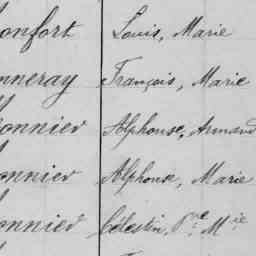 onfort Louis, Marie
nneray François, Marie
onnier Alphonse, Armand
onnier Alphonse, Marie
onnier Célestin, Pre Mie